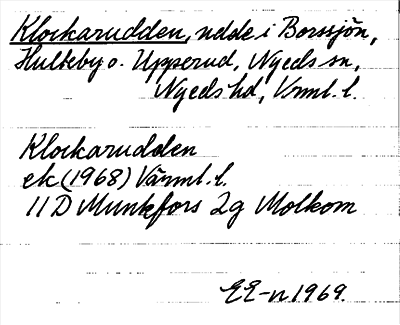 Klockarudden, udde i Borssjön,
Hulteby o. Upperud, Nyeds sn,
Nyeds hd, Vrml. l.
Klockarudden
ek (1968) Värml. l.
11 D Munkfors 2g Molkom
EE-n 1969.